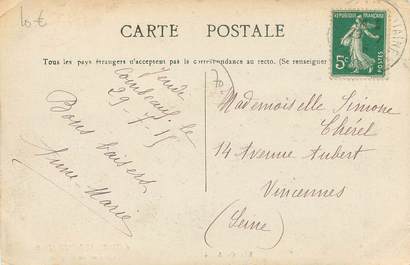 10 €
CARTE POSTALE
Tous les pays étrangers n'acceptent pas la correspondance au recto. (Se renseigner
REPUBLIQUE FRANÇAISE
5c
le
29-7-15
Bons baisers
Anne-Marie
Mademoiselle Simone
Thérel
14 Avenue Aubert
Vincennes
(Seine)